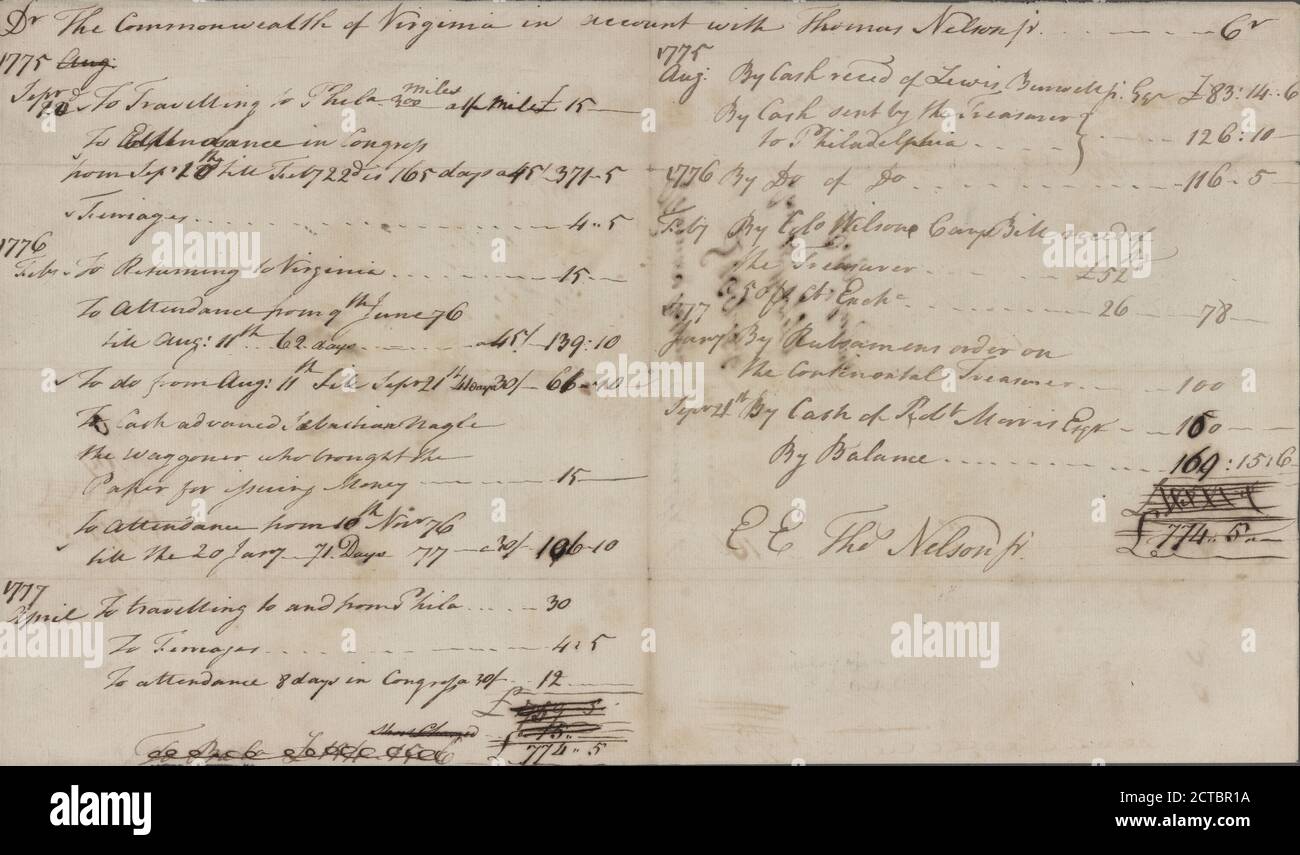 Dr The Commonwealth of Virginia in account with Thomas Nelson jr. Cr
1775 Aug.
Sepr To Travelling to Phila 300 miles a/ Mile £ 15
To Attendance in Congress
from Sepr till Feby 22d is 165 days a 45/ 371..5
Ferriages 4..5
1776
Feby To Returning to Virginia 15
To Attendance from 9th June 76
till Aug: 11th 62 days a 45/ 139:10
To do from Aug: 11th till Sepr 21th days 30/ 66..10
To Cash advanced Sebastian Nagle
the Waggoner who brought the
Paper for issuing Money 15
To Attendance from 10th Novr 76
till the 20 Jany 77 71. Days a 30/ 106-10
1777
April To travelling to and from Phila 30
To Ferriages 4..5
To attendance 8 days in Congress a 30/ 12
£
Short Charged
£ 774..5
1775
Aug: By Cash receed of Lewis Burwell jr. Esqr £83:14..6
By Cash sent by the Treasurer
to Philadelphia 126:10
1776 By Do of Do 116..5
Feby By Colo Wilson Cary Bill receed of
the Treasurer £52
50 Exche 26 78
1777
Jany By Rubsamens order on
the Continental Treasurer 100
Sepr 4th By Cash of Robt Morris Esqr 100
By Balance 169:15:6
£774..5..
E E Thos Nelson jr.
alamy
Image ID: 2CTBR1A
www.alamy.com